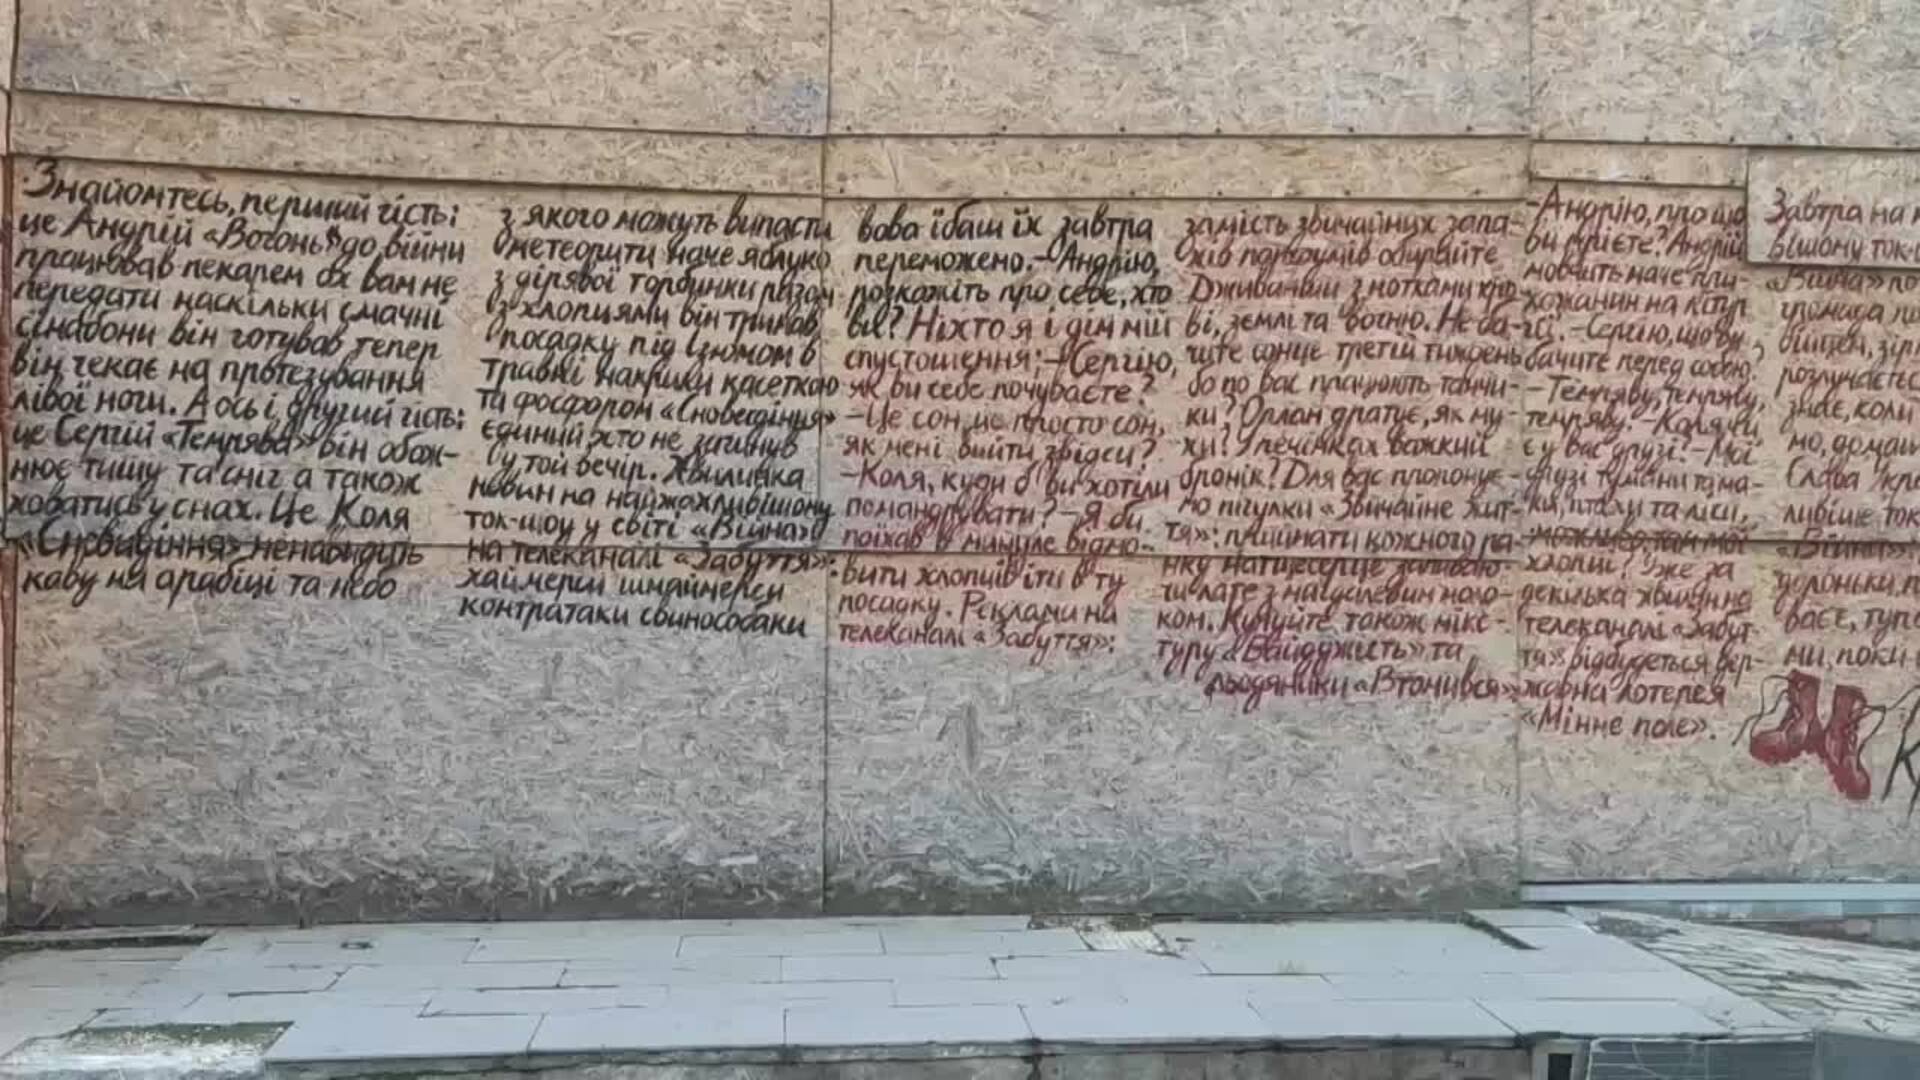 Знайомтесь, перший гість:
це Андрій «Вогонь» до війни
працював пекарем ох вам не
передати наскільки смачні
сінабони він готував тепер
він чекає на протезування
лівої ноги. А ось і другий гість:
це Сергій «Темрява» він обож-
нює тишу та сніг а також
ховатись у снах. Це Коля
«Сновидіння» ненавидить
каву на арабіці та небо
з якого можуть випасти
метеорити наче яблуко
з дірявої торбинки разом
з хлопцями він тримав
посадку під Ізюмом в
травні накрили касеткою
та фосфором «Сновидіння»
єдиний хто не загинув
у той вечір. Хвилинка
новин на найжахливішому
ток-шоу у світі «Війна»
на телеканалі «Забуття»:
хаймерси шмаймерси
контратаки свинособаки
вова їбаш їх завтра
переможемо. – Андрію,
розкажіть про себе, хто
ви? Ніхто я і дім мій
спустошення; – Сергію,
як ви себе почуваєте?
– Це сон, це просто сон,
як мені вийти звідси?
– Коля, куди б ви хотіли
помандрувати? – Я би
поїхав в минуле відмо-
вити хлопців іти в ту
посадку. Реклами на
телеканалі «Забуття»:
замість звичайних запа-
хів парфумів обирайте
Дживанши з нотками кро-
ві, землі та вогню. Не ба-
чите сонце третій тиждень
бо по вас працюють танчи-
ки? Орлан дратує, як му-
хи? У печінках важкий
бронік? Для вас пропонує-
мо пігулки «Звичайне жит-
тя»: приймати кожного ра-
нку натщесерце
моло-
ком. Купуйте також мікс-
туру «Байдужість» та
льодяники «Втомився»
– Андрію, про що
ви мрієте? Андрій
мовчить наче при-
хожанин на
– Сергію, що ви
бачите перед собою?
– Темряву, темряву,
темряву. – Коля чи
є у вас друзі? – Мої
друзі тумани та ма-
ки, птахи та ліси,
можливо, там мої
хлопці? Уже за
декілька хвилин на
телеканалі «Забут-
тя» відбудеться дер-
жавна лотерея
«Мінне поле».
Завтра на
вішому ток-
«Війна» по
громада
розлучаєтьс
знає, коли
мо, домаш
Слава Укра
ливіше ток
«Війна»
долоньки
ває, тупо
ми, поки